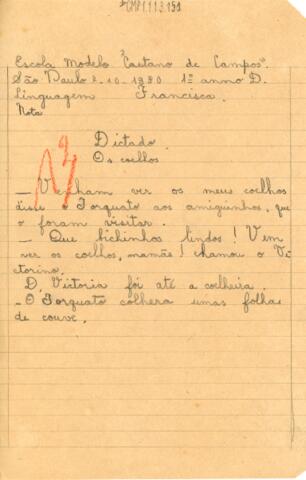 Escola Modelo "Caetano de Campos".
São Paulo 2-10-1930 1º anno D.
Linguagem Francisca.
Nota
Dictado.
Os coelhos
— Venham ver os meus coelhos
disse o Torquato aos amiguinhos, que
o foram visitar.
— Que bichinhos lindos! Vem
ver os coelhos, mamãe! chamou o Vi-
ctorino.
D. Victoria foi até a coelheira.
— O Torquato colhera umas folhas
de couve.